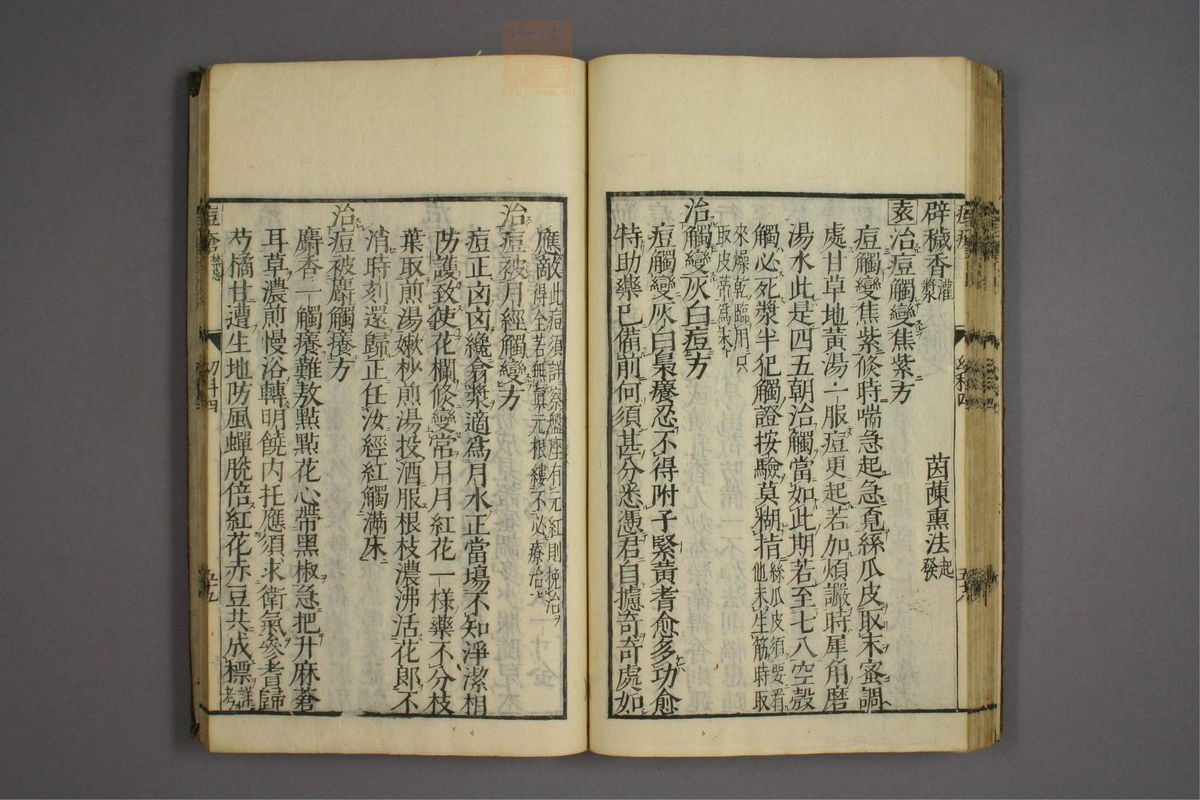 辟穢香灌漿 茵蔯熏法起發
袁治痘觸變焦紫方
痘觸變焦紫倏時喘急起急覓絲瓜皮取末蜜調
處甘草地黃湯一服痘更起若加煩讝時犀角磨
湯水此是四五朝治觸當如此期若至七八空殼
觸必死漿半犯觸證按驗莫糊指絲瓜皮須要看他未生筋時取
來燥乾臨用只取皮蒂爲末
治觸變灰白痘方
痘觸變灰白梟癢忍不得附子緊黃耆愈多功愈
特助藥已備前何須甚分悉憑君自據奇奇處如
應敵此痘須詳察盤座有元紅則挽治得全若無眞元根縷不必療治
治痘被月經觸變方
痘正囟囟纔翕漿適爲月水正當場不知淨潔相
防護致使花欄倏變常月月紅花一樣藥不分枝
葉取煎湯嫩杪煎湯投酒服根枝濃沸活花郎不
消時刻還歸正任汝經紅觸滿床
治痘被麝觸癢方
麝香一觸癢難敖點點花心帶黑椒急把升麻蒼
耳草濃煎慢浴轉明饒内托應須求衛氣參耆歸
芍橘甘遭生地防風蟬脫倍紅花赤豆共成標詳考
痘瘡禁忌 幼科四 五九